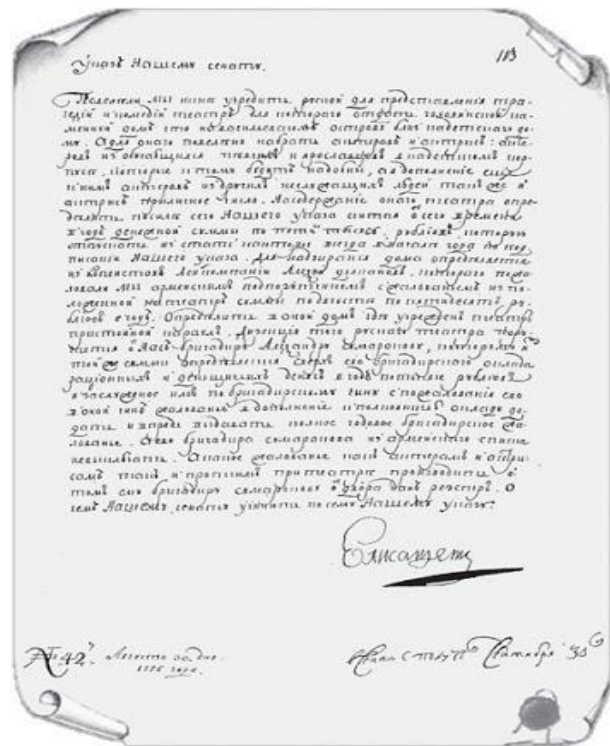 113
Указъ Нашему сенату.
Повелели Мы ныне учредить руской для представленія траъ-
гедій и комедій театръ, для котораго отдать головкинской ка-
менной домъ, что на васильевскомъ острову близ кадетскаго до-
му. А для онаго повелено набрать актеровъ и актрисъ: акте-
ровъ из обучающихся певчихъ и ярославцовъ в кадетскомъ кор-
пусе, которые к тому будутъ надобны, а в дополнение еще
к нимъ актеровъ из другихъ неслужащихъ людей, также и
актрисъ приличное число. На содержание онаго театра опре-
делить по силе сего Нашего указа считая от сего времени
в годъ денежной суммы по рублевъ, которую
отпускать из статс канторы всегда в начале года по под-
писании Нашего указа. Для надзирания дома определяется
из копеистовъ Лейбкомпании Алексей дьяконовъ, котораго пожа-
ловали Мы армейскимъ подпорутчикомъ с жалованьемъ из по-
ложенной на театръ суммы по двести по пятидесятъ ру-
блевъ в годъ. Определить в оной домъ где учрежденъ театръ
пристойной караулъ. Дирекция того рускаго театра пору-
чается от Насъ бригадиру Александру Сумарокову, которому из
той же суммы определяется сверхъ его бригадирскаго оклада
рационныхъ и денщичьихъ денегъ в годъ по тысяче рублевъ
и заслуженное имъ по бригадирскому чину с пожалования его
в оной чинъ жалованье в дополнение к полковничью окладу до-
дать и впредь выдавать полное годовое бригадирское жа-
лованье. А его бригадира сумарокова из армейскаго списка
не выключать. А какое жалованье какъ актерамъ и актри-
самъ такъ и протчимъ при театре производить о
томъ ему бригадиру сумарокову от двора данъ реэстръ. О
чемъ Нашему сенату учинить по сему Нашему указу.
Елисаветъ
№ 42. Августа 30. дня
1756 году.
Сентября 30